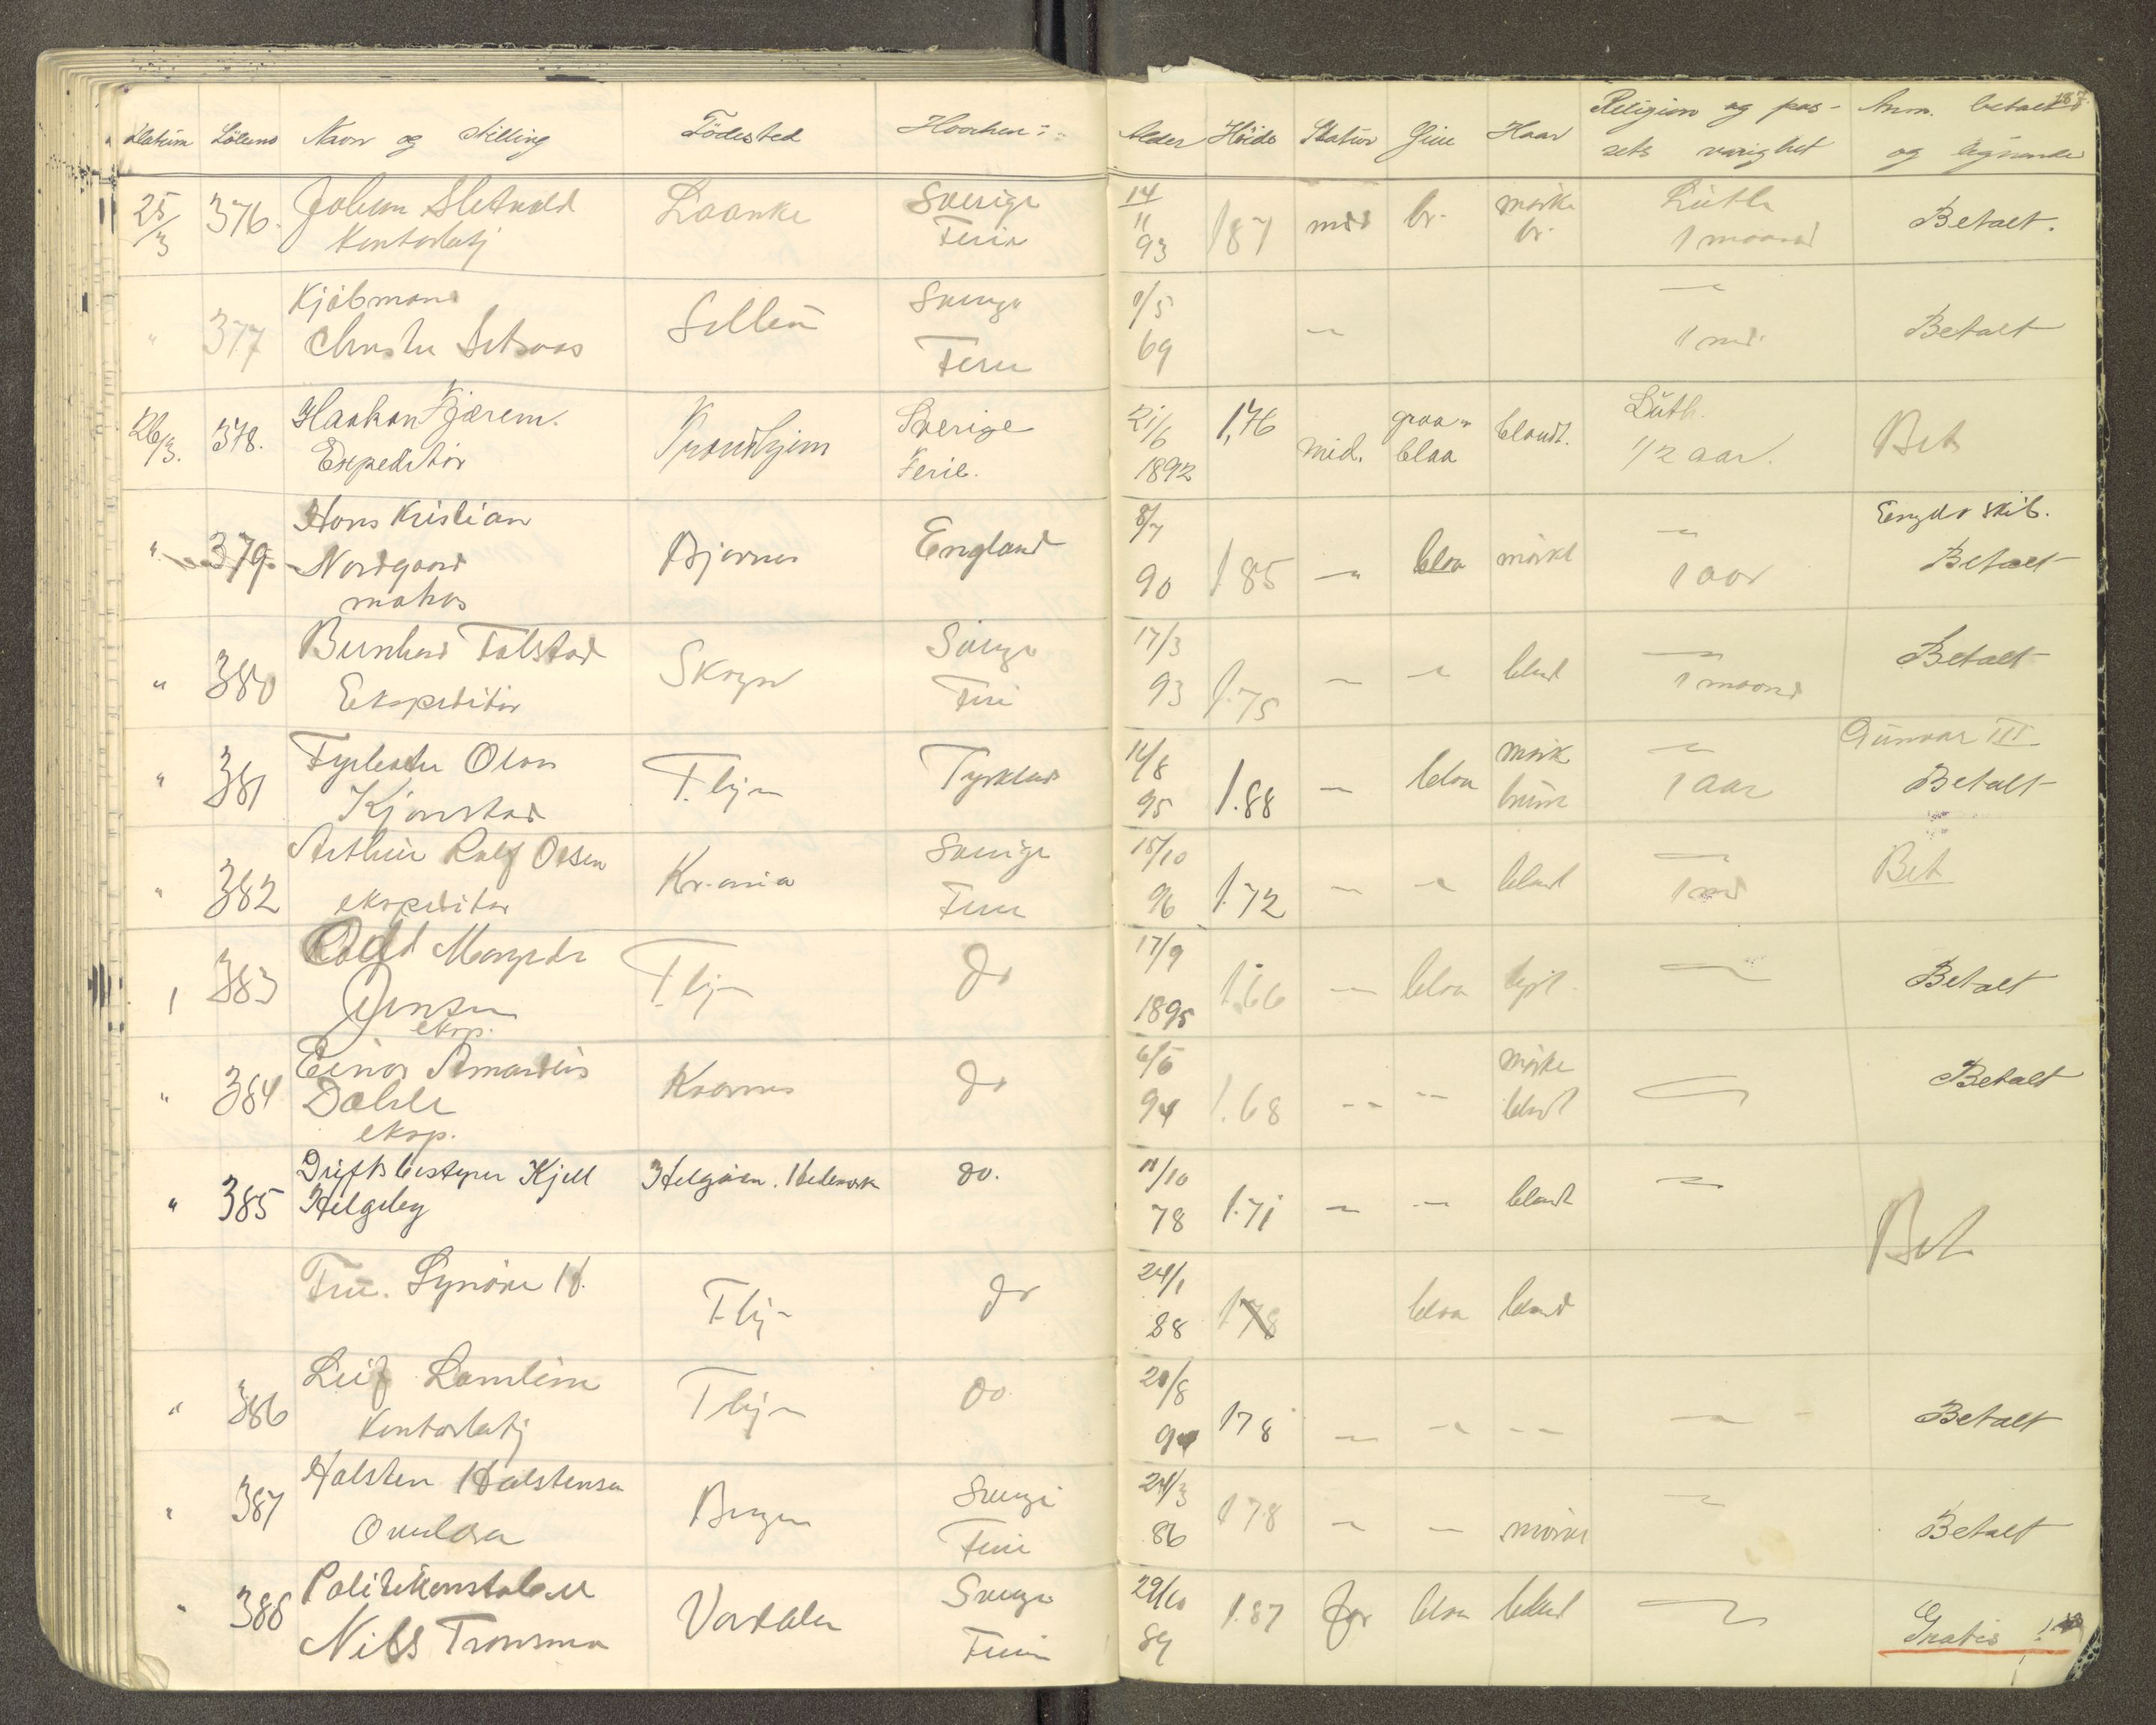 Datum Löbeno Navn og Stilling Födested Hvorhen: Alder Höide Statur Öine Haar Religion og pas- Anm. betalt 187
sets varighet og lignende
25/3 376. Johan Sletvold Laanke Sverige 14 187 mid br. mörke Luth Betalt.
Kontorbetj Ferie 11 br. 1 maaned
93
" 377 Kjöbmand Sverige 1/5 1 md. Betalt
Ferie 69
26/3. 378. Haakon Kjærem. Trondhjem Sverige 21/6 1,76 mid. graa- blandt. Luth. Bet
Expeditör Ferie. 1892 blaa 1/2 aar.
" 379. Hans Kristian Bjarnes England 8/7 185 blaa mörkt 1 aar Engelsk skib.
Nordgaard 90 Betalt
matros
" 380 Bernhard Falstad Skogn Sverige 17/3 1.75 blond 1 maaned Betalt
Ekspeditör Ferie 93
" 381 Olav T.hj- Tyskland 14/8 1.88 blaa mörk 1 aar Gunvar III
Kjönstad 95 brune Betalt
" 382 Arthur Ralf Olsen Kr.ania Sverige 15/10 1.72 blond 1 md Bet
ekspeditör Ferie 96
383 T.hj- do 17/9 1.66 blaa lyst Betalt
Jensen 1895
eksp.
" 384 Einar Amandus do 6/6 1.68 mörke Betalt
Dahle 94 blond
eksp.
" 385 Driftsbestyrer Kjell Helgöen. Hedemark do. 11/10 1.71 blond Bet
Helgeby 78
Fru. Synöve H. T.hj- do 24/1 178 blaa blond
88
" 386 Leif Lamlim T.hj- do. 20/8 178 Betalt
Kontorbetj 94
" 387 Halsten Halstensen Bergen Sverige 24/3 178 mörke Betalt
Ferie 86
" 388 Politikonstabel Værdalen Sverige 29/10 1.87 för blaa blond Gratis!
Nils Tronsmo Ferie 89